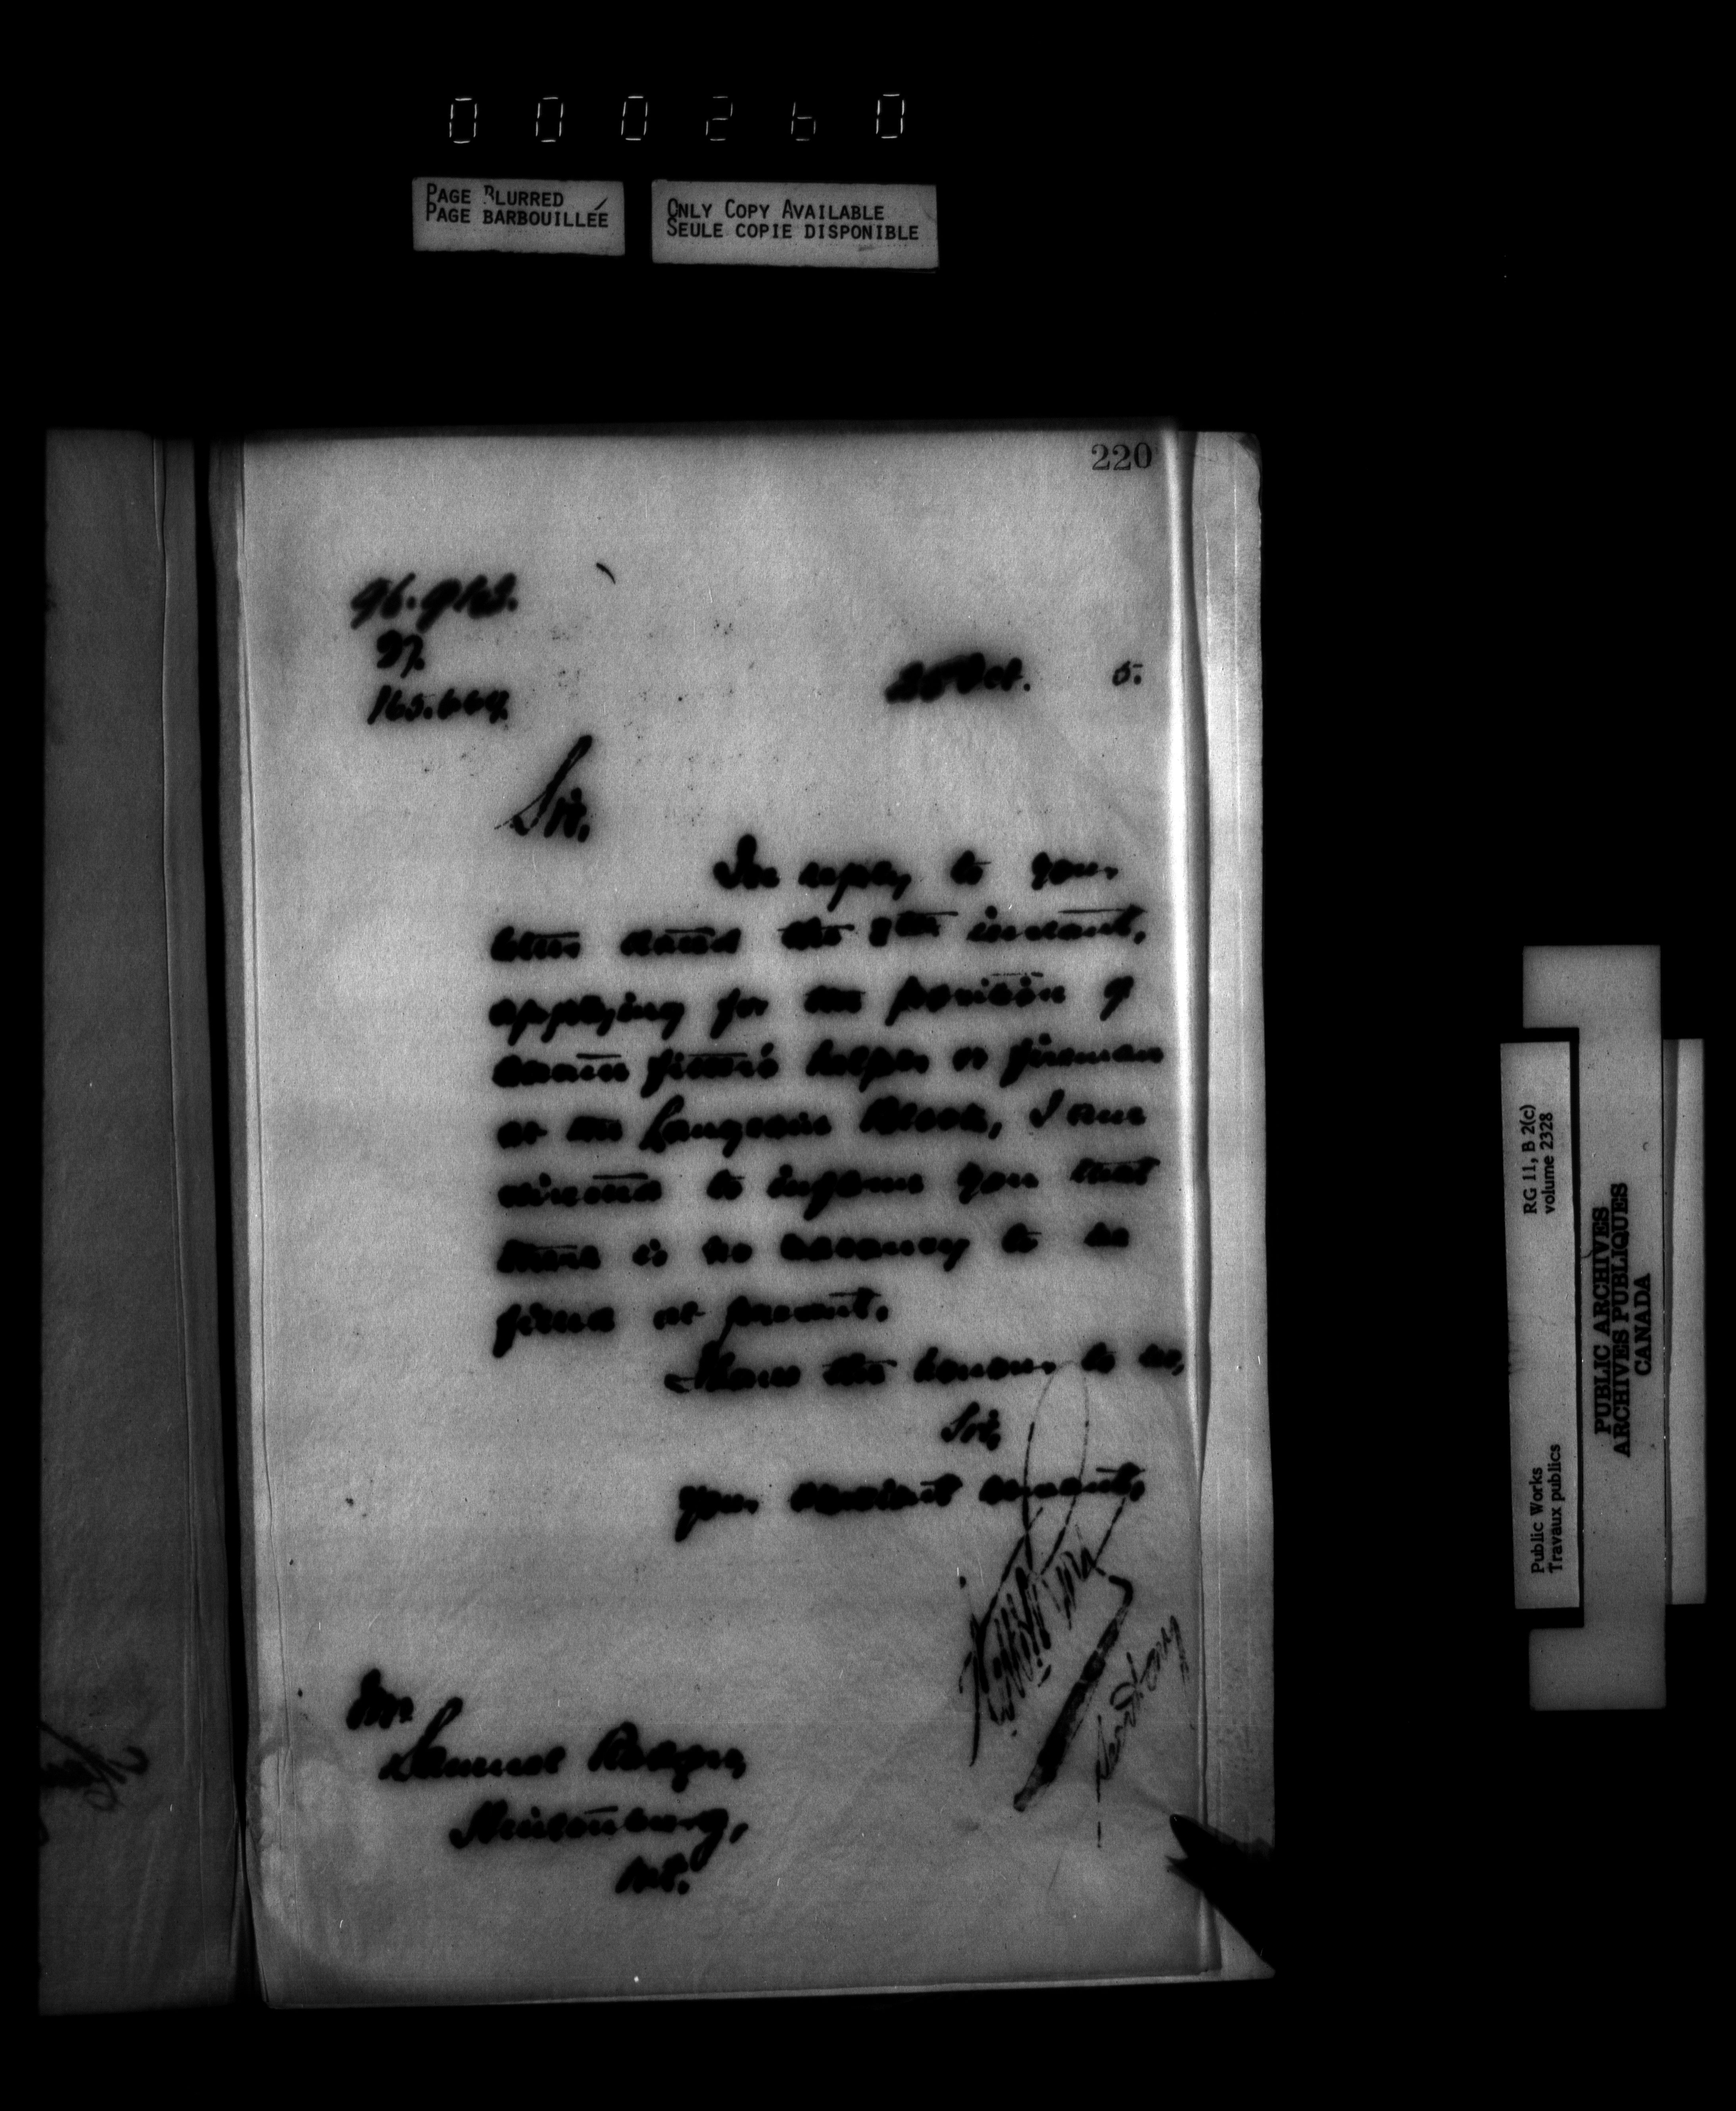 000260
PAGE BLURRED
PAGE BARBOUILLÉE
ONLY COPY AVAILABLE
SEULE COPIE DISPONIBLE
220
97.
25 Oct. 5.
Sir,
In reply to your
letter dated the 7th instant,
applying for the position of
steam fitter's helper or fireman
at the Langevin Block, I am
directed to inform you that
there is no vacancy to be
filled at present.
I have the honour to be,
Sir,
your obedient servant,
Mr.
Samuel
RG 11, B 2(c)
volume 2328
Public Works
Travaux publics
PUBLIC ARCHIVES
ARCHIVES PUBLIQUES
CANADA